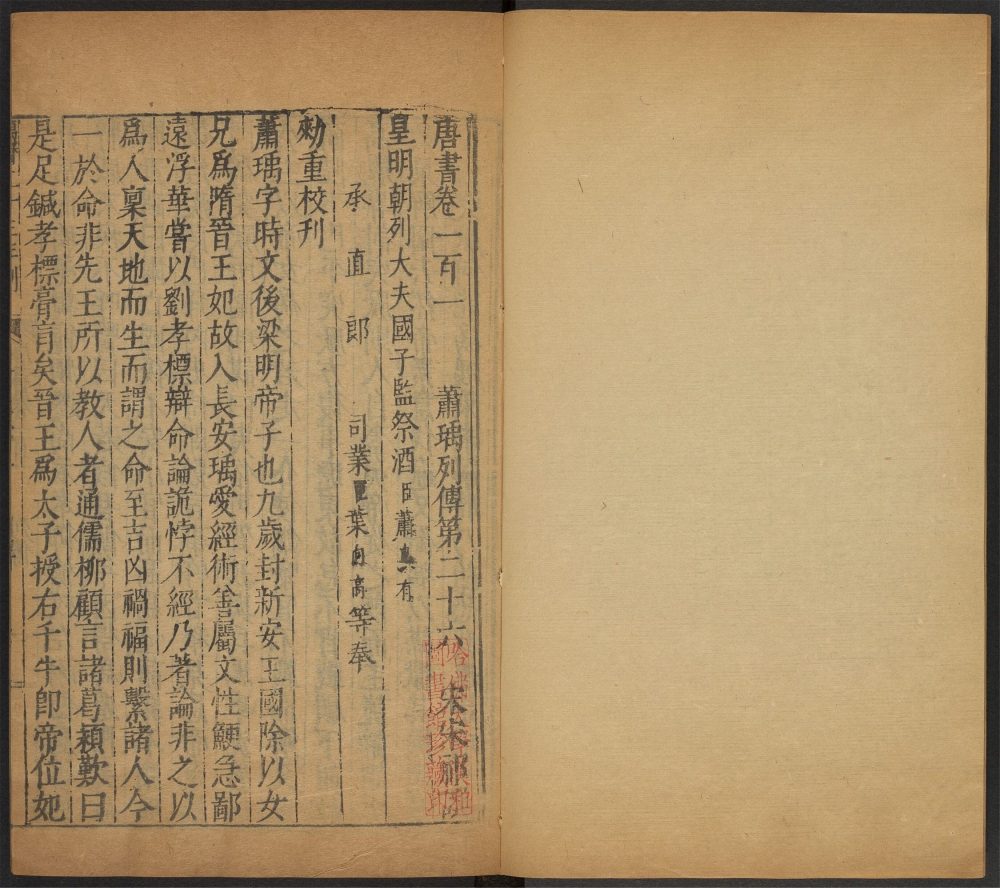 唐書卷一百一 蕭瑀列傳第二十六 宋宋祁
皇明朝列大夫國子監祭酒臣蕭有
承直郎司業臣葉等奉
勑重校刊
蕭瑀字時文後梁明帝子也九歲封新安王國除以女
兄爲隋晉王妃故入長安瑀愛經術善屬文性鯁急鄙
遠浮華嘗以劉孝標辯命論詭悖不經乃著論非之以
爲人稟天地而生而謂之命至吉凶禍福則繫諸人今
一於命非先王所以教人者通儒柳顧言諸葛穎歎曰
是足鍼孝標膏肓矣晉王爲太子授右千牛卽帝位妃